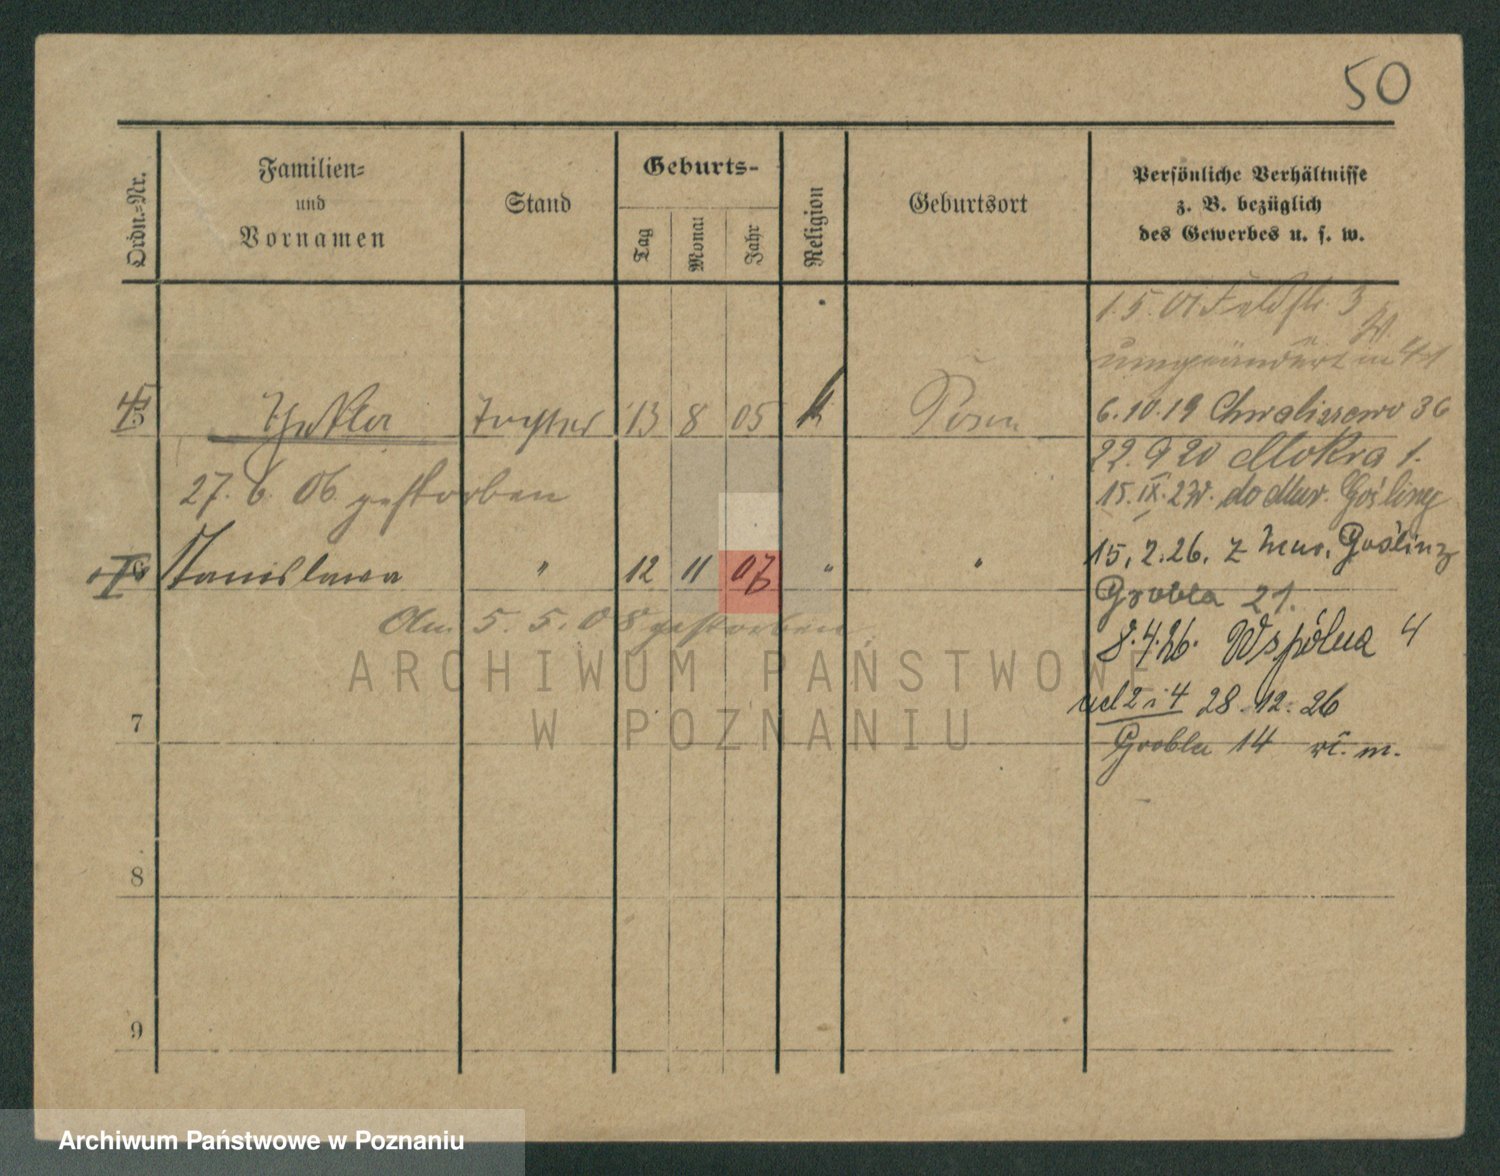 50
Ordn.-Nr.
Familien-
und
Vornamen
Stand
Geburts-
Tag
Monat
Jahr
Religion
Geburtsort
Persönliche Verhältnisse
z. B. bezüglich
des Gewerbes u. s. w.
1.5.07 Feldstr. 3
umgeändert in 41
5 Thekla Tochter 13 8 05 k Posen
6.10.19 Chwaliszewo 36
22.9 20 Mokra 1.
27. 6. 06 gestorben
15.IX. do Mur. Gośliny
15.2.26. z Mur. Gośliny
Stanislawa " 12 11 07 " "
Grobla 21.
Am 5. 5. 08 gestorben.
8.4.26. Wspólna 4
ARCHIWUM PAŃSTWOWE
W POZNANIU
2 i 4 28.12.26
7
Grobla 14 m.
8
9
Archiwum Państwowe w Poznaniu